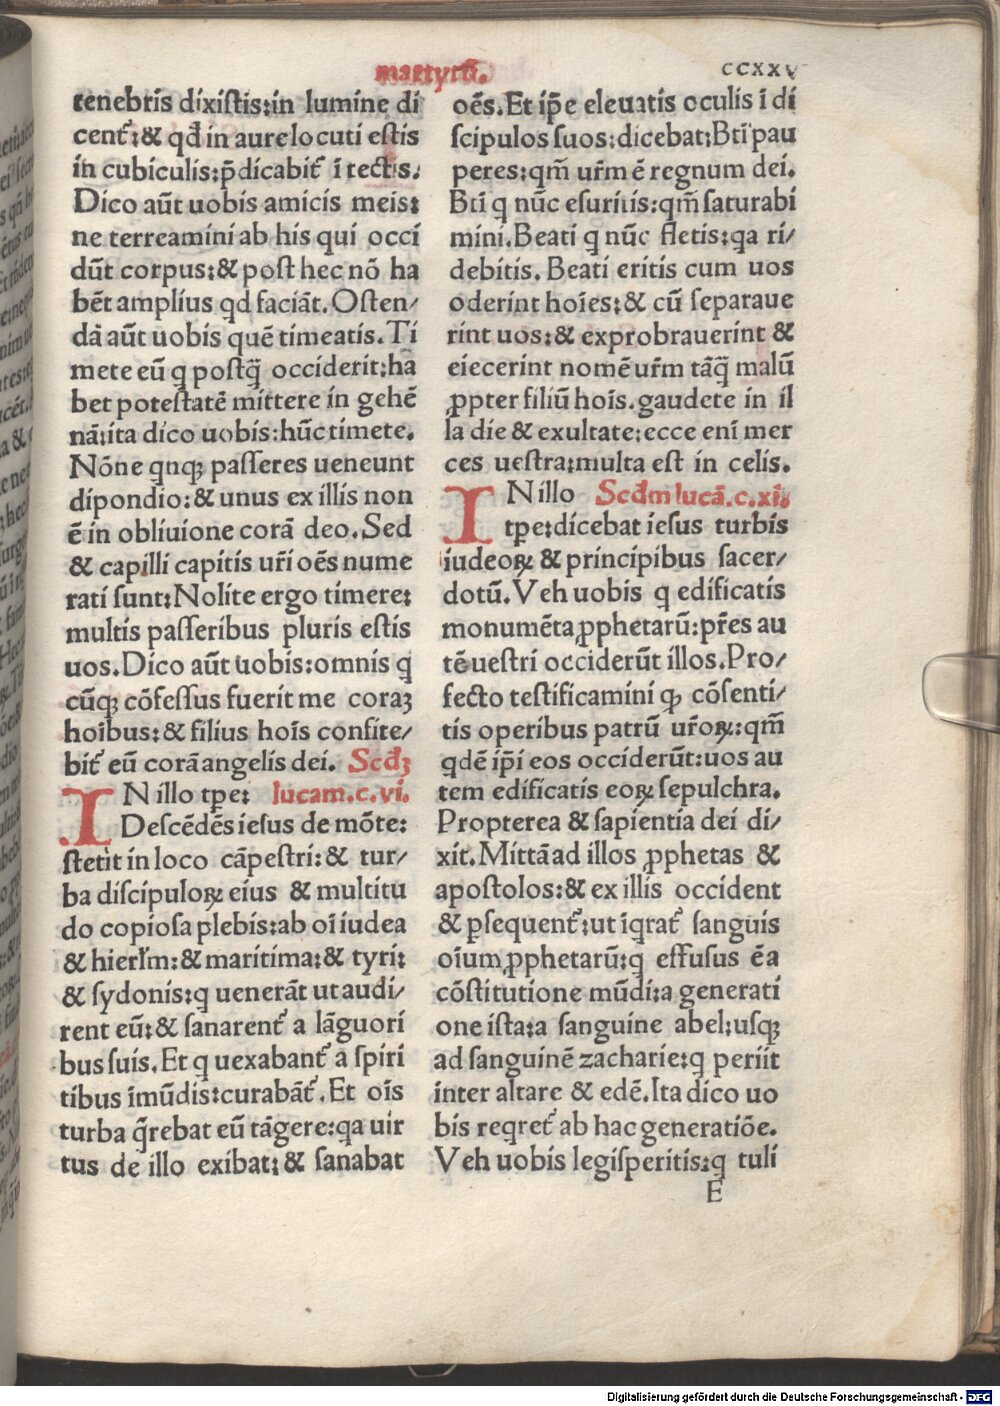 martyrũ.
CCXXV
tenebris dixistis:in lumine di
cent᷑:& qđ in aure locuti estis
in cubiculis:p̃dicabit᷑ ĩ tectis.
Dico aũt uobis amicis meis:
ne terreamini ab his qui occi
dũt corpus:& post hec nõ ha
bẽt amplius qd faciãt.Osten/
dã aũt uobis quẽ timeatis.Ti
mete eũ q postq̃ occiderit:ha
bet potestatẽ mittere in gehẽ
nã:ita dico uobis:hũc timete.
Nõne qnqꝫ passeres ueneunt
dipondio:& unus ex illis non
ẽ in obliuione corã deo.Sed
& capilli capitis ur̃i oẽs nume
rati sunt:Nolite ergo timere:
multis passeribus pluris estis
uos.Dico aũt uobis:omnis q
cũqꝫ cõfessus fuerit me coraꝫ
hoĩbus:& filius hoĩs confite/
bit᷑ eũ corã angelis dei. Scđꝫ
IN illo tpe: lucam.c.vi.
Descẽdẽs iesus de mõte:
stetit in loco cãpestri:& tur/
ba discipuloꝝ eius & multitu
do copiosa plebis:ab oĩ iudea
& hierl̃m:& maritima:& tyri:
& sydonis:q uenerãt ut audi/
rent eũ:& sanarent᷑ a lãguori
bus suis.Et q uexabant᷑ a spiri
tibus ĩmũdis:curabãt᷑.Et oĩs
turba q̃rebat eũ tãgere:qa uir
tus de illo exibat:& sanabat
oẽs.Et ip̃e eleuatis oculis ĩ di
scipulos suos:dicebat:Bti̇̃ pau
peres:qm̃ ur̃m ẽ regnum dei.
Bti̇̃ q nũc esuritis:qm̃ saturabi
mini.Beati q nũc fletis:qa ri/
debitis. Beati eritis cum uos
oderint hoĩes:& cũ separaue
rint uos:& exprobrauerint &
eiecerint nomẽ ur̃m tãq̃ malũ
ꝓpter filiũ hoĩs.gaudete in il
la die & exultate:ecce enĩ mer
ces uestra:multa est in celis.
IN illo Scđm lucã.c.xi.
tpe:dicebat iesus turbis
iudeoꝝ & principibus sacer/
dotũ.Veh uobis q edificatis
monumẽta ꝓphetarũ:pr̃es au
tẽ uestri occiderũt illos.Pro/
fecto testificamini qꝫ cõsenti/
tis operibus patrũ ur̃oꝝ:qm̃
qdẽ ip̃i eos occiderũt:uos au
tem edificatis eoꝝ sepulchra.
Propterea & sapientia dei di/
xit.Mittã ad illos ꝓphetas &
apostolos:& ex illis occident
& ꝑsequent᷑:ut iqrat᷑ sanguis
oĩum ꝓphetarũ:q effusus ẽ a
cõstitutione mũdi:a generati
one ista:a sanguine abel:usqꝫ
ad sanguinẽ zacharie:q periit
inter altare & edẽ.Ita dico uo
bis reqret᷑ ab hac generatiõe.
Veh uobis legisperitis:q tuli
E
Digitalisierung gefördert durch die Deutsche Forschungsgemeinschaft - DFG